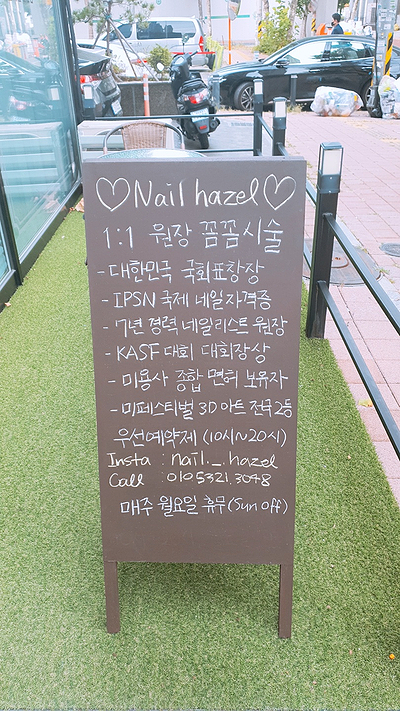 ♡Nail hazel♡
1:1 원장 꼼꼼시술
- 대한민국 국회표창장
- IPSN 국제 네일자격증
- 7년 경력 네일리스트 원장
- KASF 대회 대회장상
- 미용사 종합 면허 보유자
- 미페스티벌 3D아트 전국2등
우선예약제 (10시~20시)
Insta : nail._.hazel
Call : 010 5321.3048
매주 월요일 휴무(Sun off)